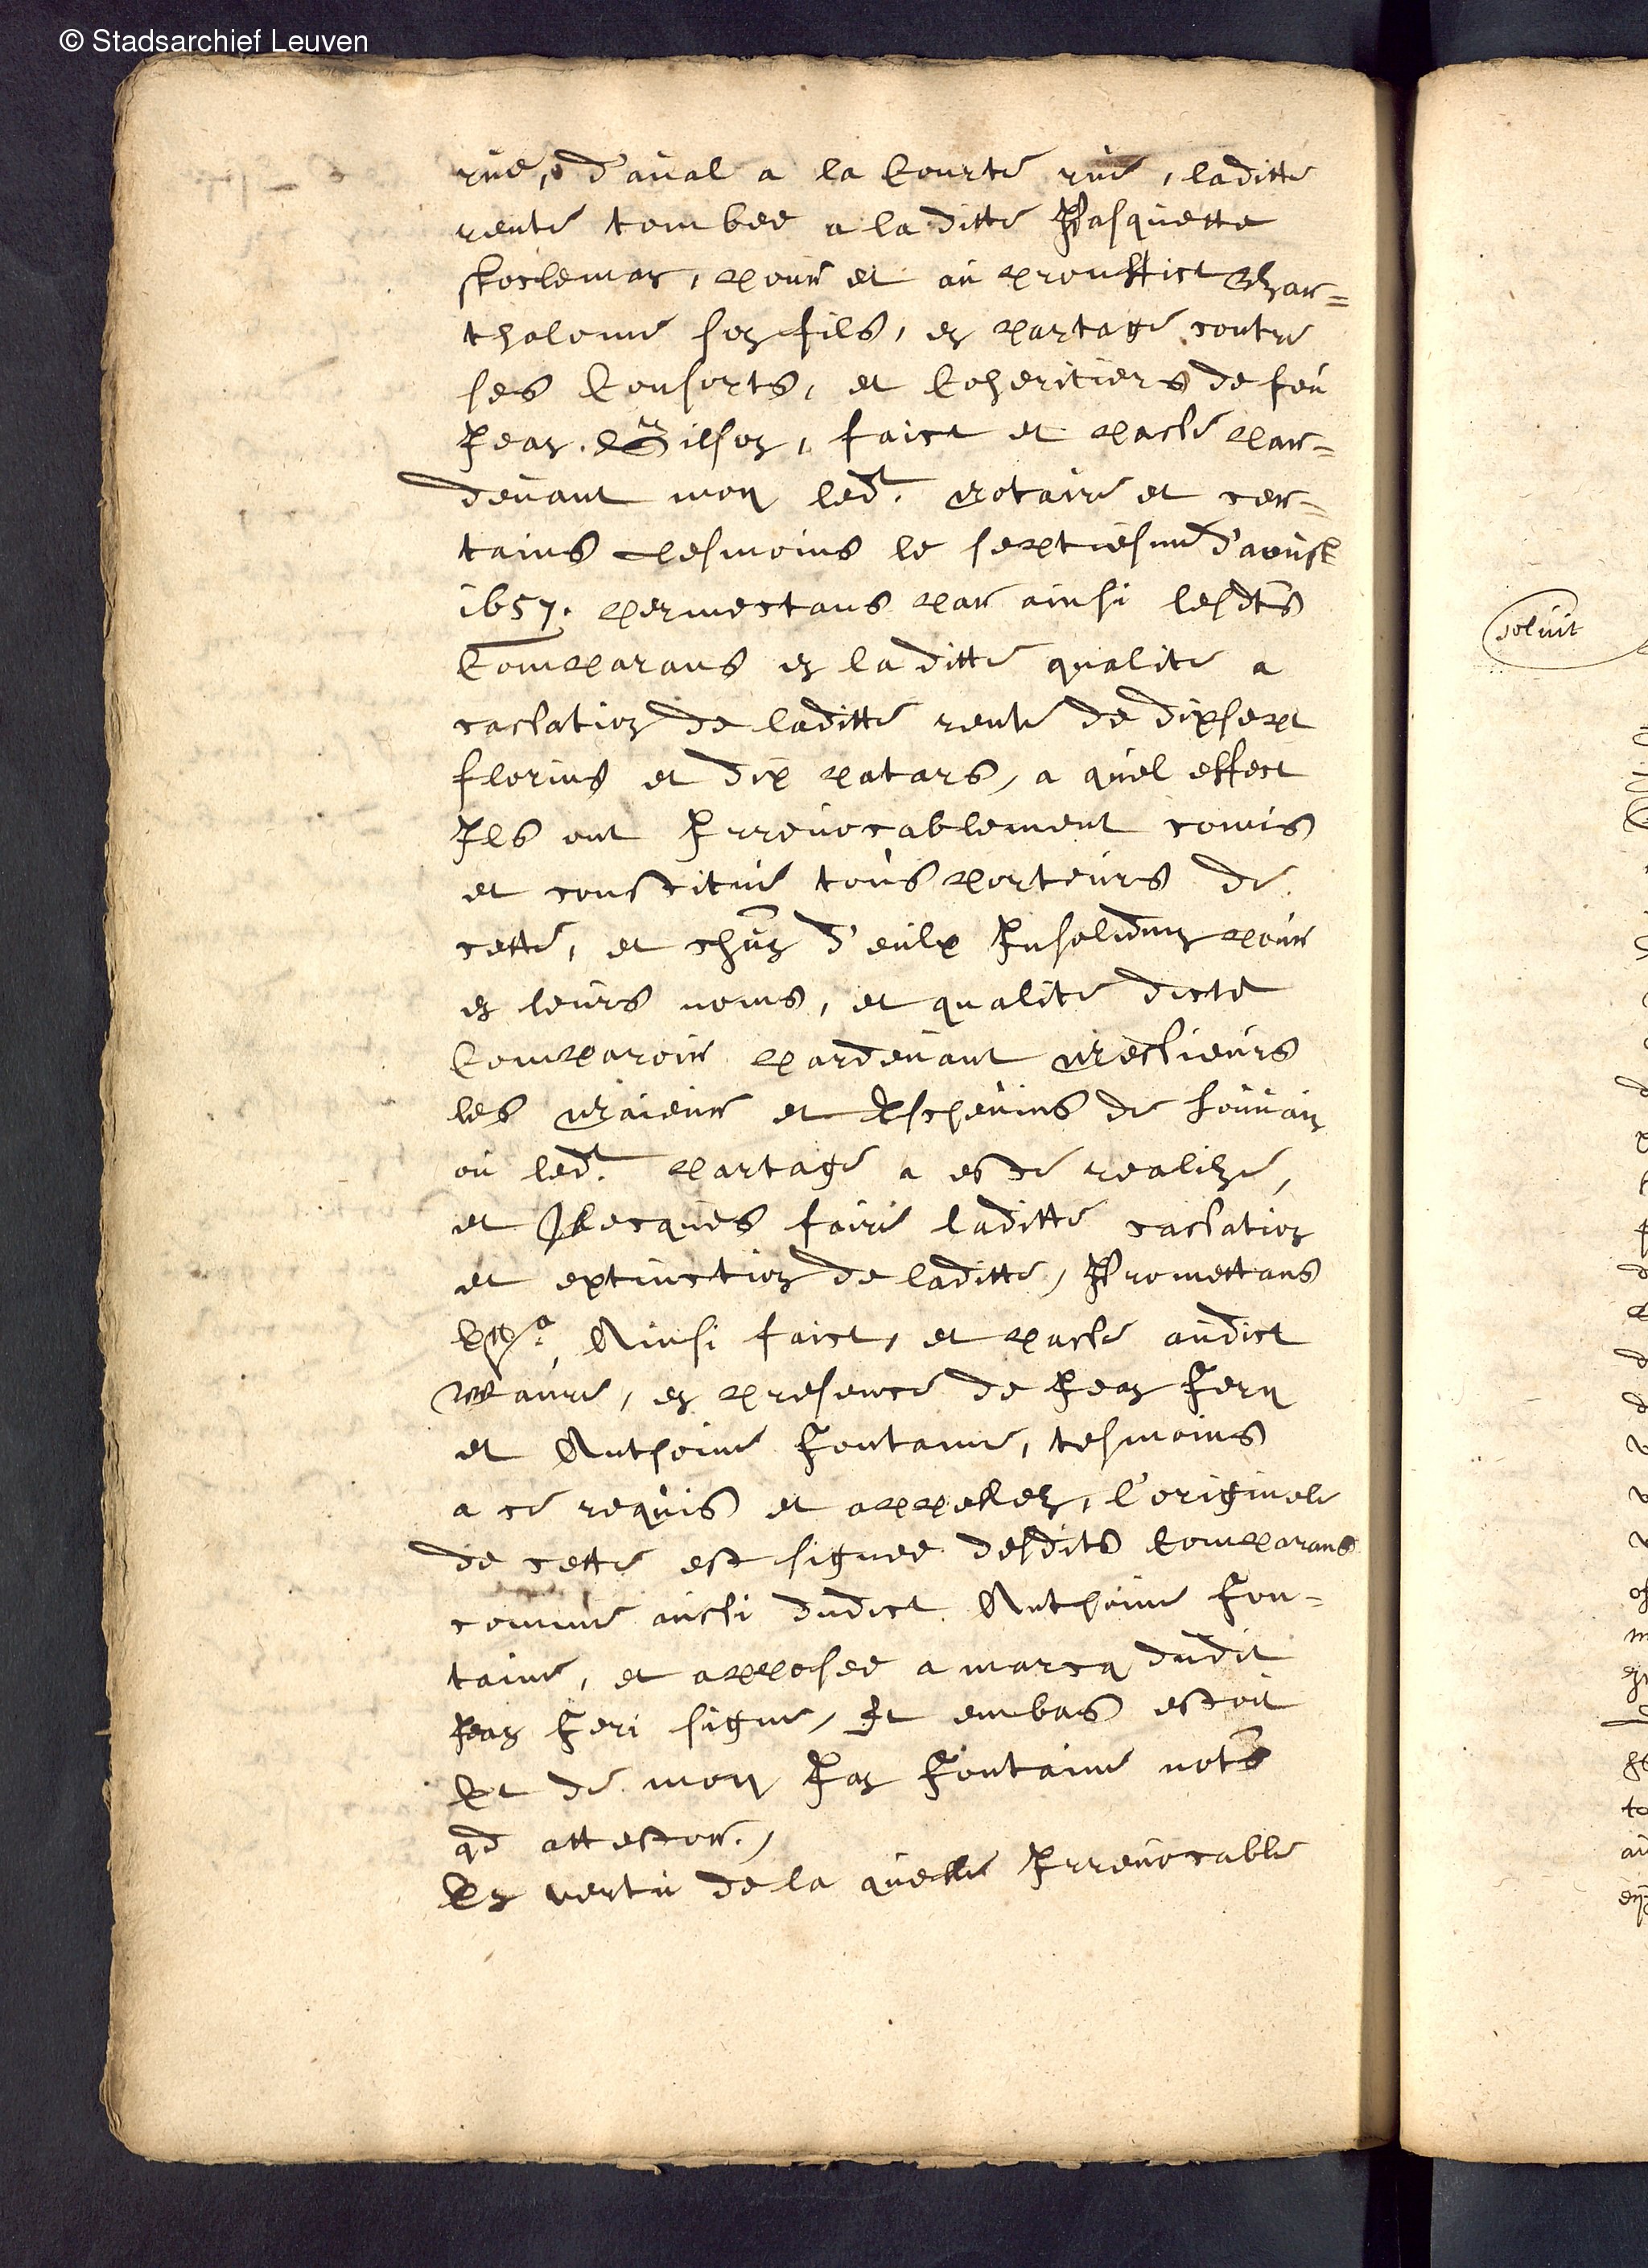 © Stadsarchief Leuven
rue, d'aual a la Courte rue, laditte
rente tombee a la ditte Pasquette
pour et au prouffict Bar=
tholome son fils, en partage contre
ses Consorts, et Coheritiers de feu
Jean Gilson, faict et passé par=
deuant moy led.t Notaire et cer=
tains tesmoins le septiesme d'aoust
1657. permectans par ainsi lesdts
Comparans en la ditte qualite a
cassation de laditte rente de dixsept
florins et dix patars, a quel effect
Ils ont Irreuocablement comis
et constitué tous porteurs de
cette, et chun d'eulx Insolidum pour
en leurs noms, et qualité dicte
Comparoir pardeuant Messieurs
les Maieur et Escheuins de Louuain
ou led.t partage a esté realizé,
et Illecques faire laditte cassation
et extinction de laditte, Promettans
Ainsi faict, et passé audict
Waure, en presence de Jean Fery
et Anthoine Fontaine, tesmoins
a ce requis et appellez, l'originele
de cette est signee desdits Comparans
comme aussi dudict Anthoine Fon=
taine, et apposee a marcq dudit
Jean Feri signé, Et embas estoit
Et de moy Jan Fontaine nots
qd attestor.
En vertu de la quelle Irreuocable
soluit